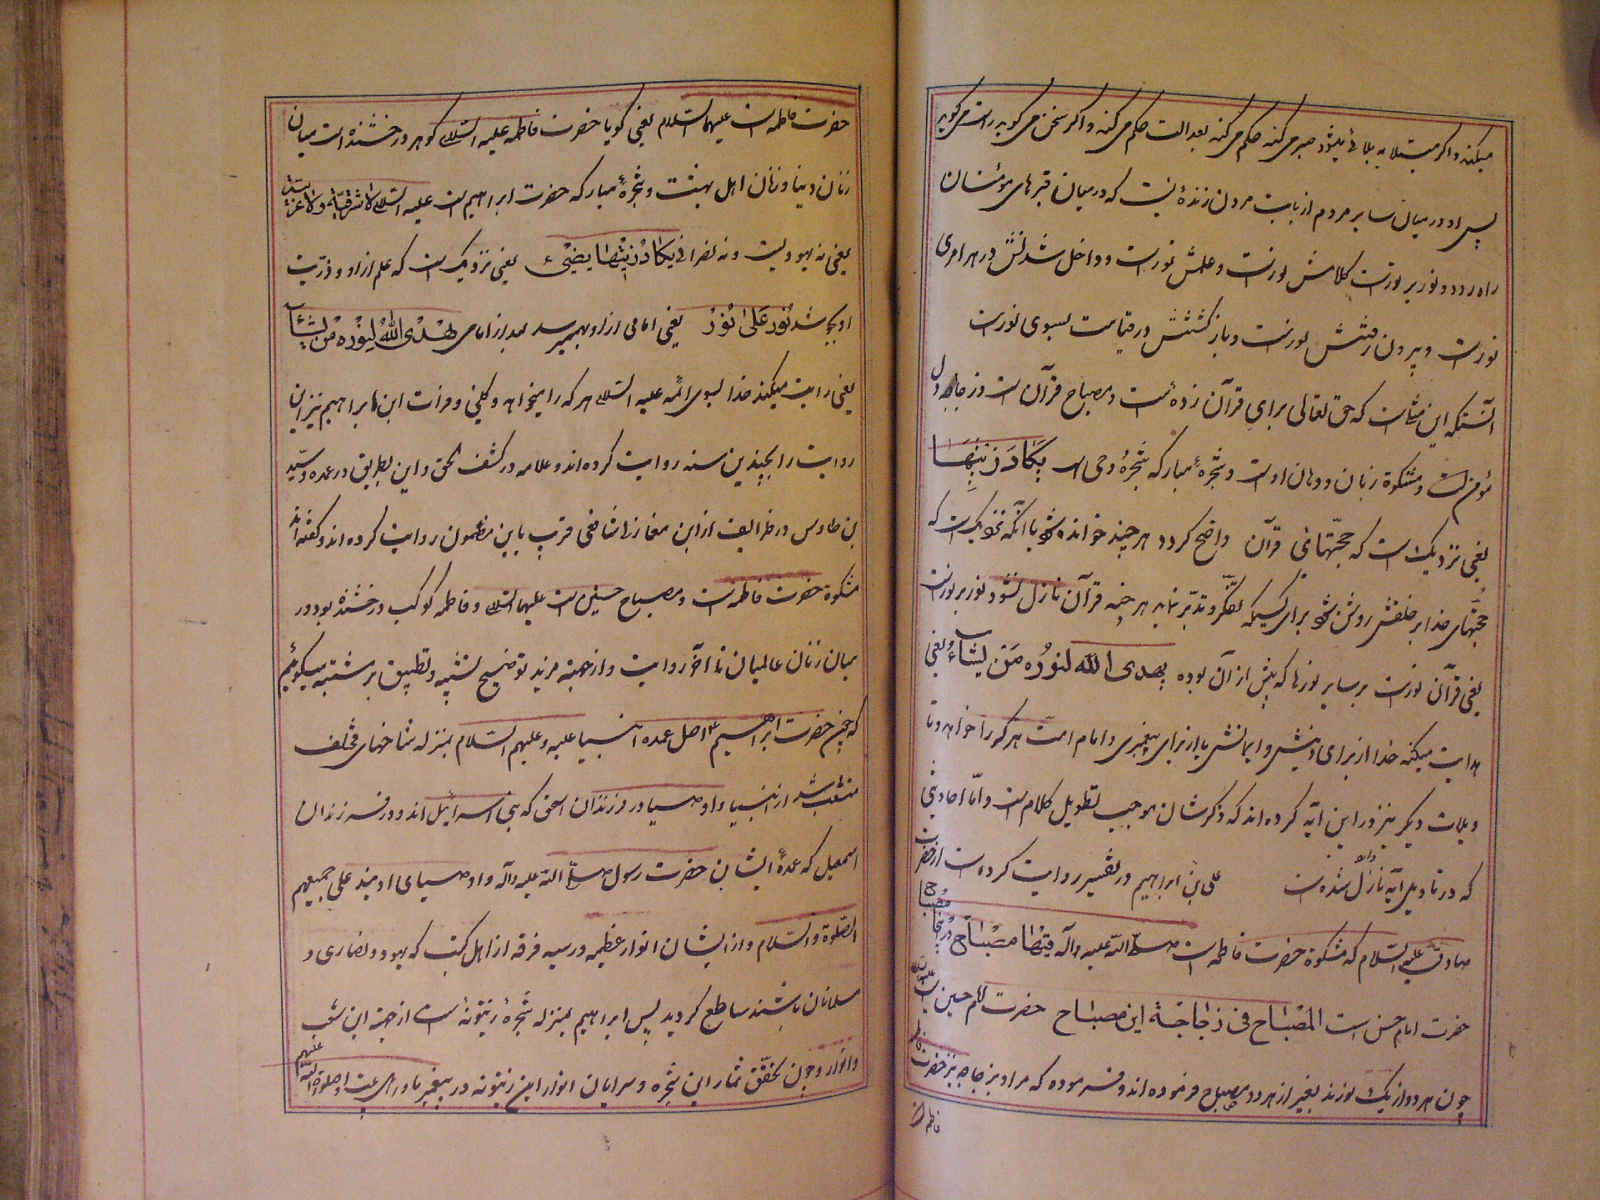 میکند و اکر مبتلا به بلائی بشود صبر می کند حکم می کند بعدالت حکم می کند و اکر سخن می کوید راست می کوید
پس او در میان سایر مردم از بابت مردن زنده است که در میان قبرهای مؤمنان
راه رود و نور بر نورست کلامش نورست و علمش نورست و داخل شدنش در هر امری
نورست و بیرون رفتنش نورست و بازکشتنش در قیامت بسوی نورست
آنستکه این مثلست که حق تعالی برای قرآن زده است و مصباح قرآن است و زجاجه دل
مؤمن است و مشکوة زبان و دهان اوست و شجرهٔ مبارکه شجرهٔ وحی است یَکَادُ زَیْتُهَا
یعنی نزدیک است که حجتهای قرآن واضح کردد هر چند خوانده نشود یا آنکه نزدیک است که
حجتهای خدا بر خلقش روشن شود برای کسیکه تفکر و تدبر نماید هر چند قرآن نازل نشود نور بر نورست
یعنی قرآن نورست بر سایر نورها که پیش از آن بوده یهدی الله لنوره من یشاء یعنی
هدایت میکند خدا از برای دینش و ایمانش یا از برای پیغمبری و امامت هر که را خواهد و تا
ویلات دیکر نیز در این ایه کرده اند که ذکرشان موجب تطویل کلام است و امّا احادیثی
که در تاویل ایه نازل شده است علی بن ابراهیم در تفسیر روایت کرده است از حضرت
صادق علیه السلام که مشکوة حضرت فاطمه است صلی الله علیه وآله فیها مصباح در اینجا مصباح
حضرت امام حسن است المصباح فی زجاجة این مصباح حضرت امام حسین است علیه السلام
چون هر دو از یک نورند تعبیر از هر دو بمصباح فرموده اند و فرموده که مراد بزجاجه نیز حضرت فاطمه
فاطمه است
حضرت فاطمه است علیها السلام یعنی کویا حضرت فاطمه علیها السلام کوهر درخشنده است میان
زنان دنیا و زنان اهل بهشت و شجرهٔ مبارکه حضرت ابراهیم است علیه السلام لا شرقیة ولا غربیة
یعنی نه یهودیست و نه نصرانی یکاد زیتها یضیٔ یعنی نزدیک است که علم از او و ذریت
او بجوشد نُورٌ عَلیٰ نُورٍ یعنی امامی از او بهم میرسد بعد از امامی یَهْدِی اللهُ لِنُورِهِ مَنْ یَشَآء
یعنی هدایت میکند خدا بسوی ائمه علیه السلام هر که را میخواهد و کلینی و فرات ابن ابراهیم نیز این
روایت را بچندین سند روایت کرده اند و علامه در کشف الحق و ابن بطریق در عمده و سید
بن طاوس در طرایف از ابن مغازلی شافعی قریب باین مضمون روایت کرده اند و کفته اند
مشکوة حضرت فاطمه است و مصباح حسنین است علیهما السلام و فاطمه کوکب درخشنده بود در
میان زنان عالمیان تا آخر روایت و از جهة مزید توضیح تشبیه و تطبیق بر مشتبه میکوئیم
که چون حضرت ابراهیم ع اصل عمده انبیا علیه و علیهم السلام بمنزله شاخهای مختلف
منشعب شد از انبیا و اوصیا در فرزندان اسحق که بنی اسرائیل اند و در فرزندان
اسمعیل که عمدهٔ ایشان حضرت رسول صلی الله علیه وآله و اوصیای اویند علی جمیعهم
الصلوة والسلام و از ایشان انوار عظیمه در سه فرقه از اهل کتب که یهود و نصاری و
مسلمانان باشند ساطع کردید پس ابراهیم بمنزله شجرهٔ زیتونه است از جهة این شعب
و انوار و چون تحقق ثمار این شجره و سرایان انوار این زیتونه در پیغمبر ما و اهل بیت او صلوات الله علیهم